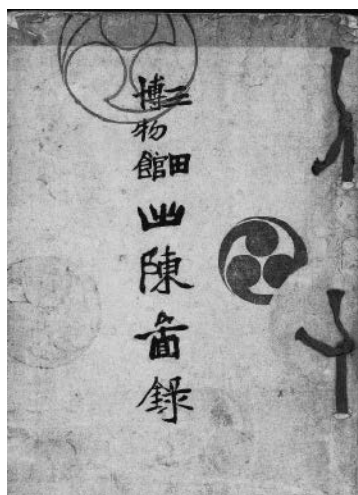 三田
博物館
出陳啚録